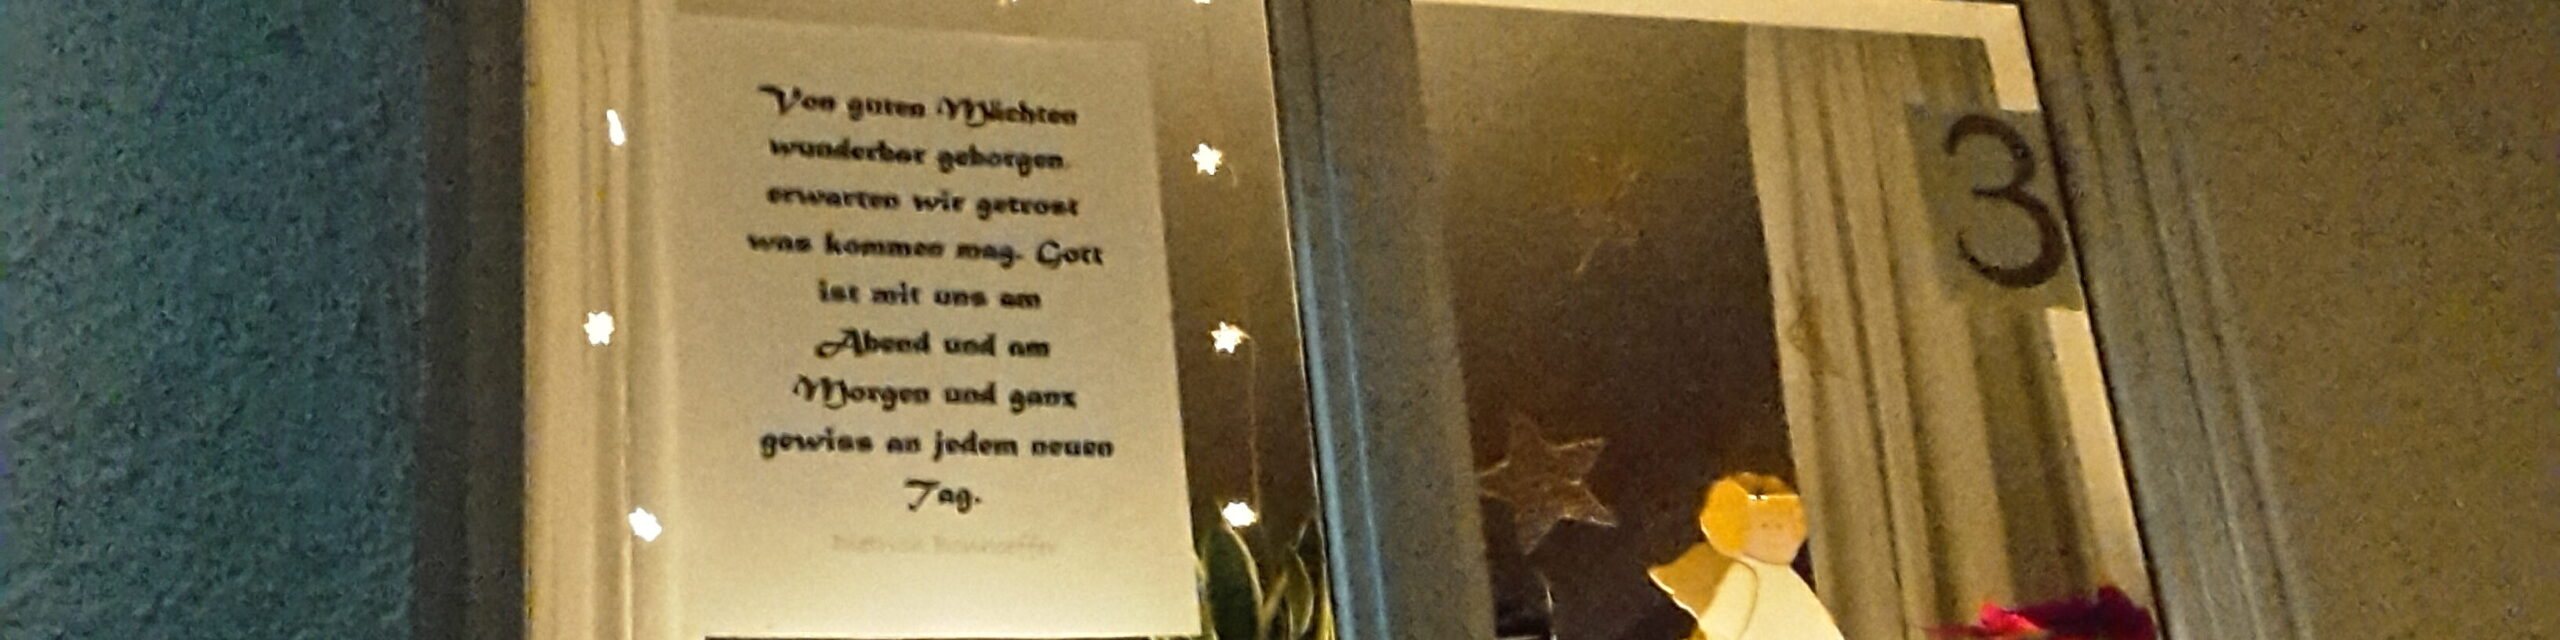 Von guten Mächten
wunderbar geborgen
erwarten wir getrost
was kommen mag. Gott
ist mit uns am
Abend und am
Morgen und ganz
gewiss an jedem neuen
Tag.
Dietrich Bonhoeffer
3